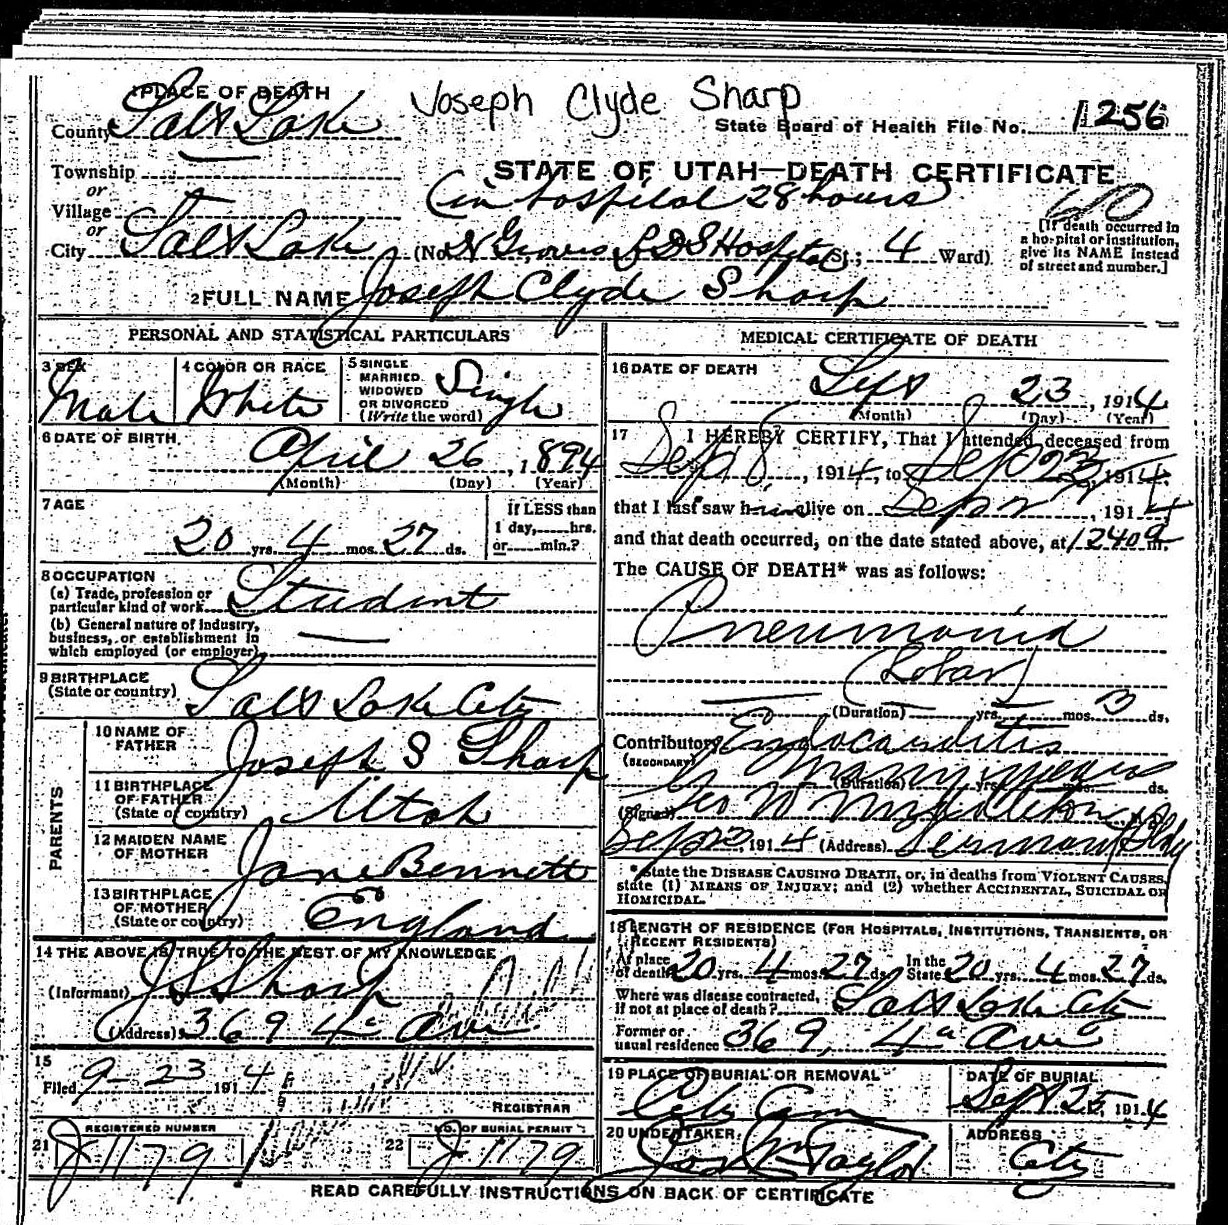 1 PLACE OF DEATH
Joseph Clyde Sharp
County Salt Lake
State Board of Health File No. 1256
Township
or
Village
or
City Salt Lake
STATE OF UTAH—DEATH CERTIFICATE
(in hospital 28 hours
(No. Dr Groves L D S Hospital St.; 4 Ward)
[If death occurred in
a hospital or institution,
give its NAME instead
of street and number.]
2 FULL NAME Joseph Clyde Sharp
PERSONAL AND STATISTICAL PARTICULARS
3 SEX
Male
4 COLOR OR RACE
White
5 SINGLE
MARRIED
WIDOWED
OR DIVORCED
(Write the word)
Single
6 DATE OF BIRTH
April 26, 1894
(Month) (Day) (Year)
7 AGE
20 yrs. 4 mos. 27 ds.
If LESS than
1 day, hrs.
or min.?
8 OCCUPATION
(a) Trade, profession or
particular kind of work Student
(b) General nature of industry,
business, or establishment in
which employed (or employer)
9 BIRTHPLACE
(State or country) Salt Lake City
PARENTS
10 NAME OF
FATHER Joseph S Sharp
11 BIRTHPLACE
OF FATHER
(State or country) Utah
12 MAIDEN NAME
OF MOTHER Jane Bennett
13 BIRTHPLACE
OF MOTHER
(State or country) England
14 THE ABOVE IS TRUE TO THE BEST OF MY KNOWLEDGE
(Informant) J S Sharp
(Address) 369 4th Ave
15
Filed 9-23 1914
REGISTRAR
REGISTERED NUMBER
21 J1179
NO. OF BURIAL PERMIT
22 J1179
MEDICAL CERTIFICATE OF DEATH
16 DATE OF DEATH
Sept 23, 1914
(Month) (Day) (Year)
17 I HEREBY CERTIFY, That I attended deceased from
Sep 8, 1914, to Sep 23, 1914
that I last saw him alive on Sep 22, 1914
and that death occurred, on the date stated above, at 1240a m.
The CAUSE OF DEATH* was as follows:
Pneumonia
(Lobar)
(Duration) yrs. mos. 3 ds.
Contributory Endocarditis
(SECONDARY)
many years
(Duration) yrs. mos. ds.
(Signed) Geo W Middleton M.D.
Sep 23 1914 (Address)
*State the DISEASE CAUSING DEATH, or, in deaths from VIOLENT CAUSES,
state (1) MEANS OF INJURY; and (2) whether ACCIDENTAL, SUICIDAL OR
HOMICIDAL.
18 LENGTH OF RESIDENCE (FOR HOSPITALS, INSTITUTIONS, TRANSIENTS, OR
RECENT RESIDENTS)
At place
of death 20 yrs. 4 mos. 27 ds.
In the
State 20 yrs. 4 mos. 27 ds.
Where was disease contracted,
if not at place of death? Salt Lake City
Former or
usual residence 369, 4th Ave
19 PLACE OF BURIAL OR REMOVAL
City Cem
DATE OF BURIAL
Sept 25, 1914
20 UNDERTAKER
Jos Wm Taylor
ADDRESS
City
READ CAREFULLY INSTRUCTIONS ON BACK OF CERTIFICATE